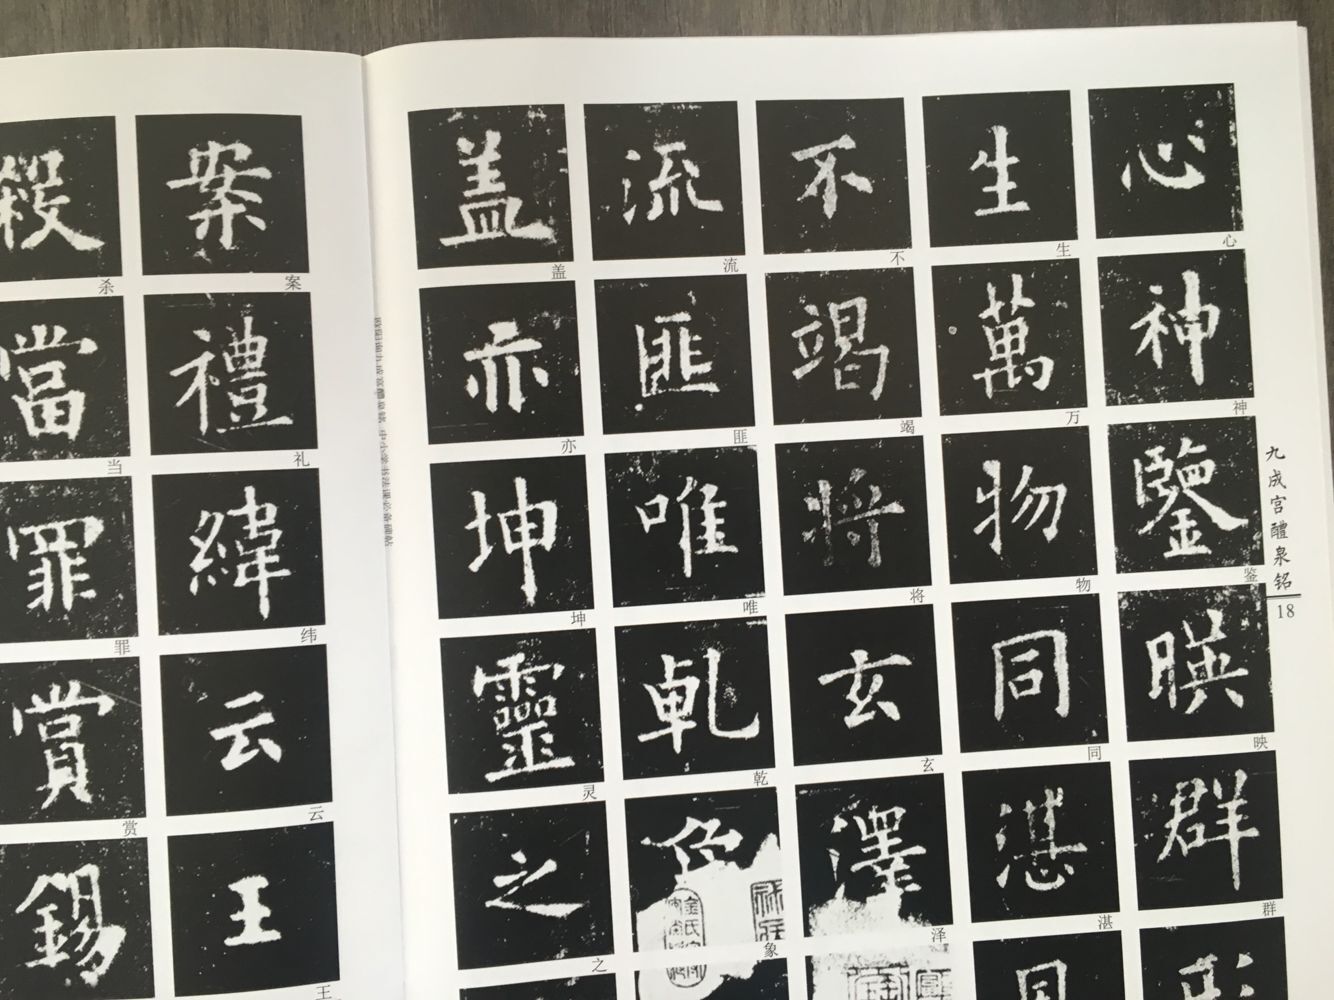 九成宫醴泉铭
18
心神鑒映群
心神鉴映群
生萬物同湛
生万物同湛
不竭將玄澤
不竭将玄泽
流匪唯乹象
流匪唯乾象
盖亦坤靈之
盖亦坤灵之
中小学书法课必备碑帖
案禮緯云王
案礼纬云王
殺當罪賞錫
杀当罪赏